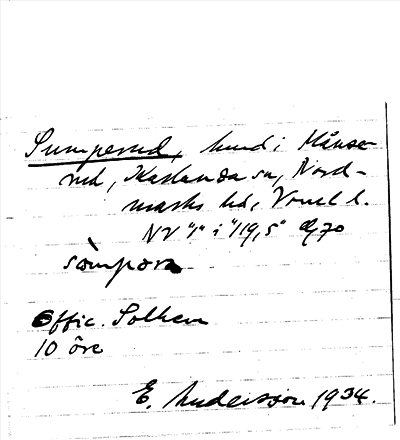 Sumperud, hmd i Månse-
rud, Karlanda sn, Nord-
marks hd, Vrml l.
NV "1" i "119,5" dz 70
sömpora
Offic. Solken
10 öre
E. Andersson 1934.